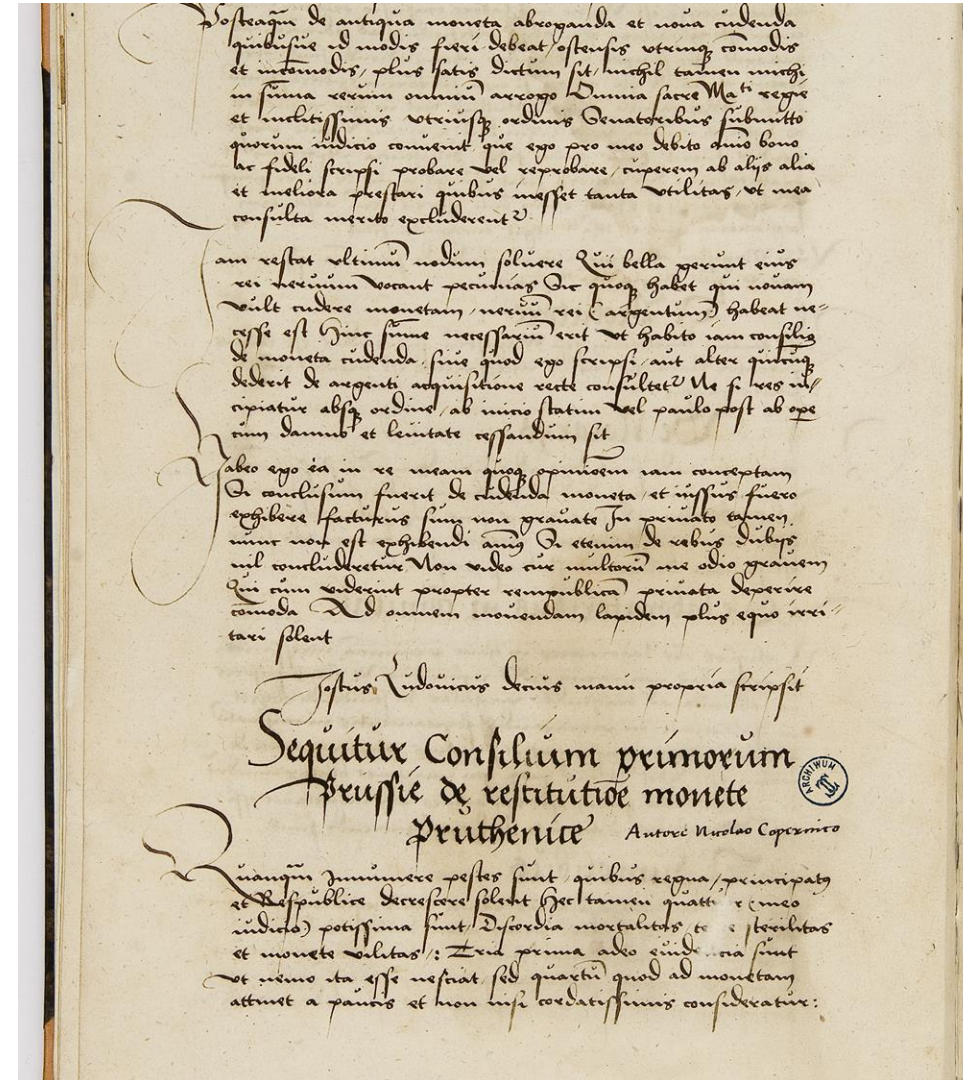 Posteaqm̄ de antiqua moneta abroganda et noua cudenda
quibusue id modis fieri debeat, ostensis vtrinqȝ com̄odis
et incom̄odis, plus satis dictum sit, nichil tamen michi
in sum̄a rerum omniū arrogo Omnia sacre Maᵗⁱ regie
et inclitissimis vtriusqȝ ordinis Senatoribus submitto
quorum iudicio conuenit, que ego pro meo debito aīo bono
ac fideli scripsi probare vel reprobare, cuperem ab alijs alia
et meliora prestari quibus inesset tanta vtilitas, vt mea
consulta merito excluderentᵘʳ
Iam restat vltimū nodum soluere Qui bella gerunt eius
rei neruum vocant pecunias Sic quoqȝ habet qui nouam
vult cudere monetam, neruū rei (argentum) habeat ne-
cesse est Hinc sum̄e necessariū erit vt habito iam consilio
de moneta cudenda, siue quod ego scripsi, aut alter quicūqȝ
dederit de argenti acquisitione recte consultetᵘʳ Ne si res in-
cipiatur absqȝ ordine, ab inicio statim vel paulo post ab opere
cum damno et leuitate cessandum sit
Habeo ego ea in re meam quoqȝ opinioem̄ iam conceptam
Si conclusum fuerit de cudenda moneta, et iussus fuero
exhibere facturus sum non grauate In priuato tamen
nunc non est exhibendi anim9 Si etenim de rebus dubijs
nil concluderetur Non video cur multorū me odio grauem
Qui cum viderint propter rempublicā priuata deperire
com̄oda Ad omnem mouendam lapidem plus equo irri-
tari solent
Jostus Ludouicus decius manu propria scripsit
Sequitur Consilium primorum
Prussie de restitutiōe monete
Pruthenice Autore Nicolao Copernico
ARCHIWUM
Quanqm̄ Innumere pestes sunt, quibus regna, principatꝰ
et Respublice decrescere solent Hec tamen quatt r (meo
iudicio) potissima sunt, Discordia mortalitas te e sterilitas
et monete vilitas,: Tria prima adeo euide cia sunt
vt nemo ita esse nesciat, sed quartū quod ad monetam
attinet a paucis et non nisi cordatissimis consideratur: